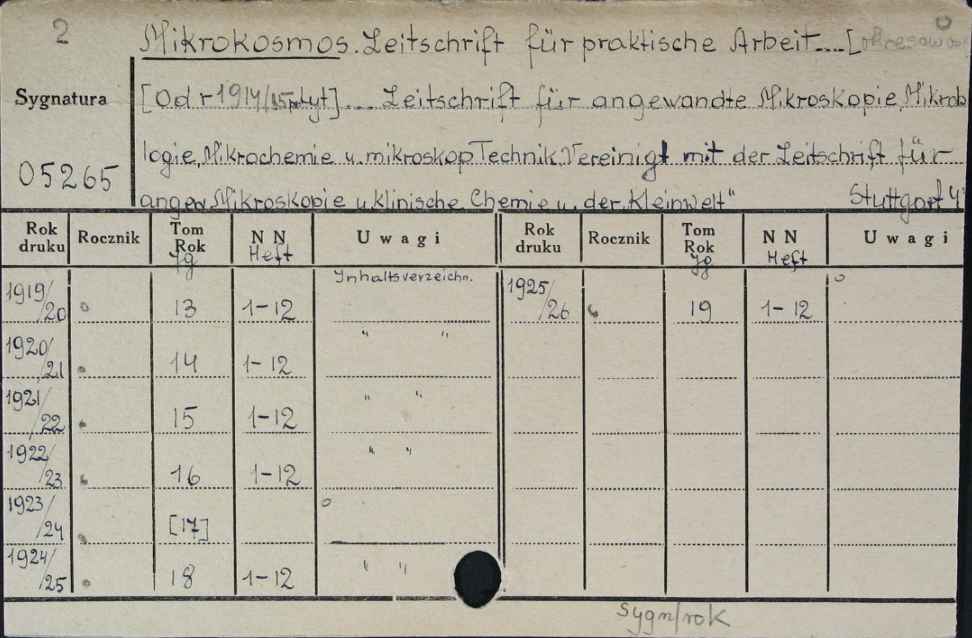 2
Mikrokosmos. Zeitschrift für praktische Arbeit....[
Sygnatura
[Od r 1914/15 tyt].... Zeitschrift für angewandte Mikroskopie, Mikrob
logie, Mikrochemie u. mikroskop Technik. Vereinigt mit der Zeitschrift für
05265
angew. Mikroskopie u. klinische Chemie u. der „Kleinwelt" Stuttgart 4°
Rok druku Rocznik Tom Rok Jg N N Heft Uwagi Rok druku Rocznik Tom Rok Jg N N Heft Uwagi
1919/20 13 1-12 Inhaltsverzeichn. 1925/26 19 1-12
1920/21 14 1-12 " "
1921/22 15 1-12 " "
1922/23 16 1-12 " "
1923/24 [17]
1924/25 18 1-12 " "
Sygn/rok